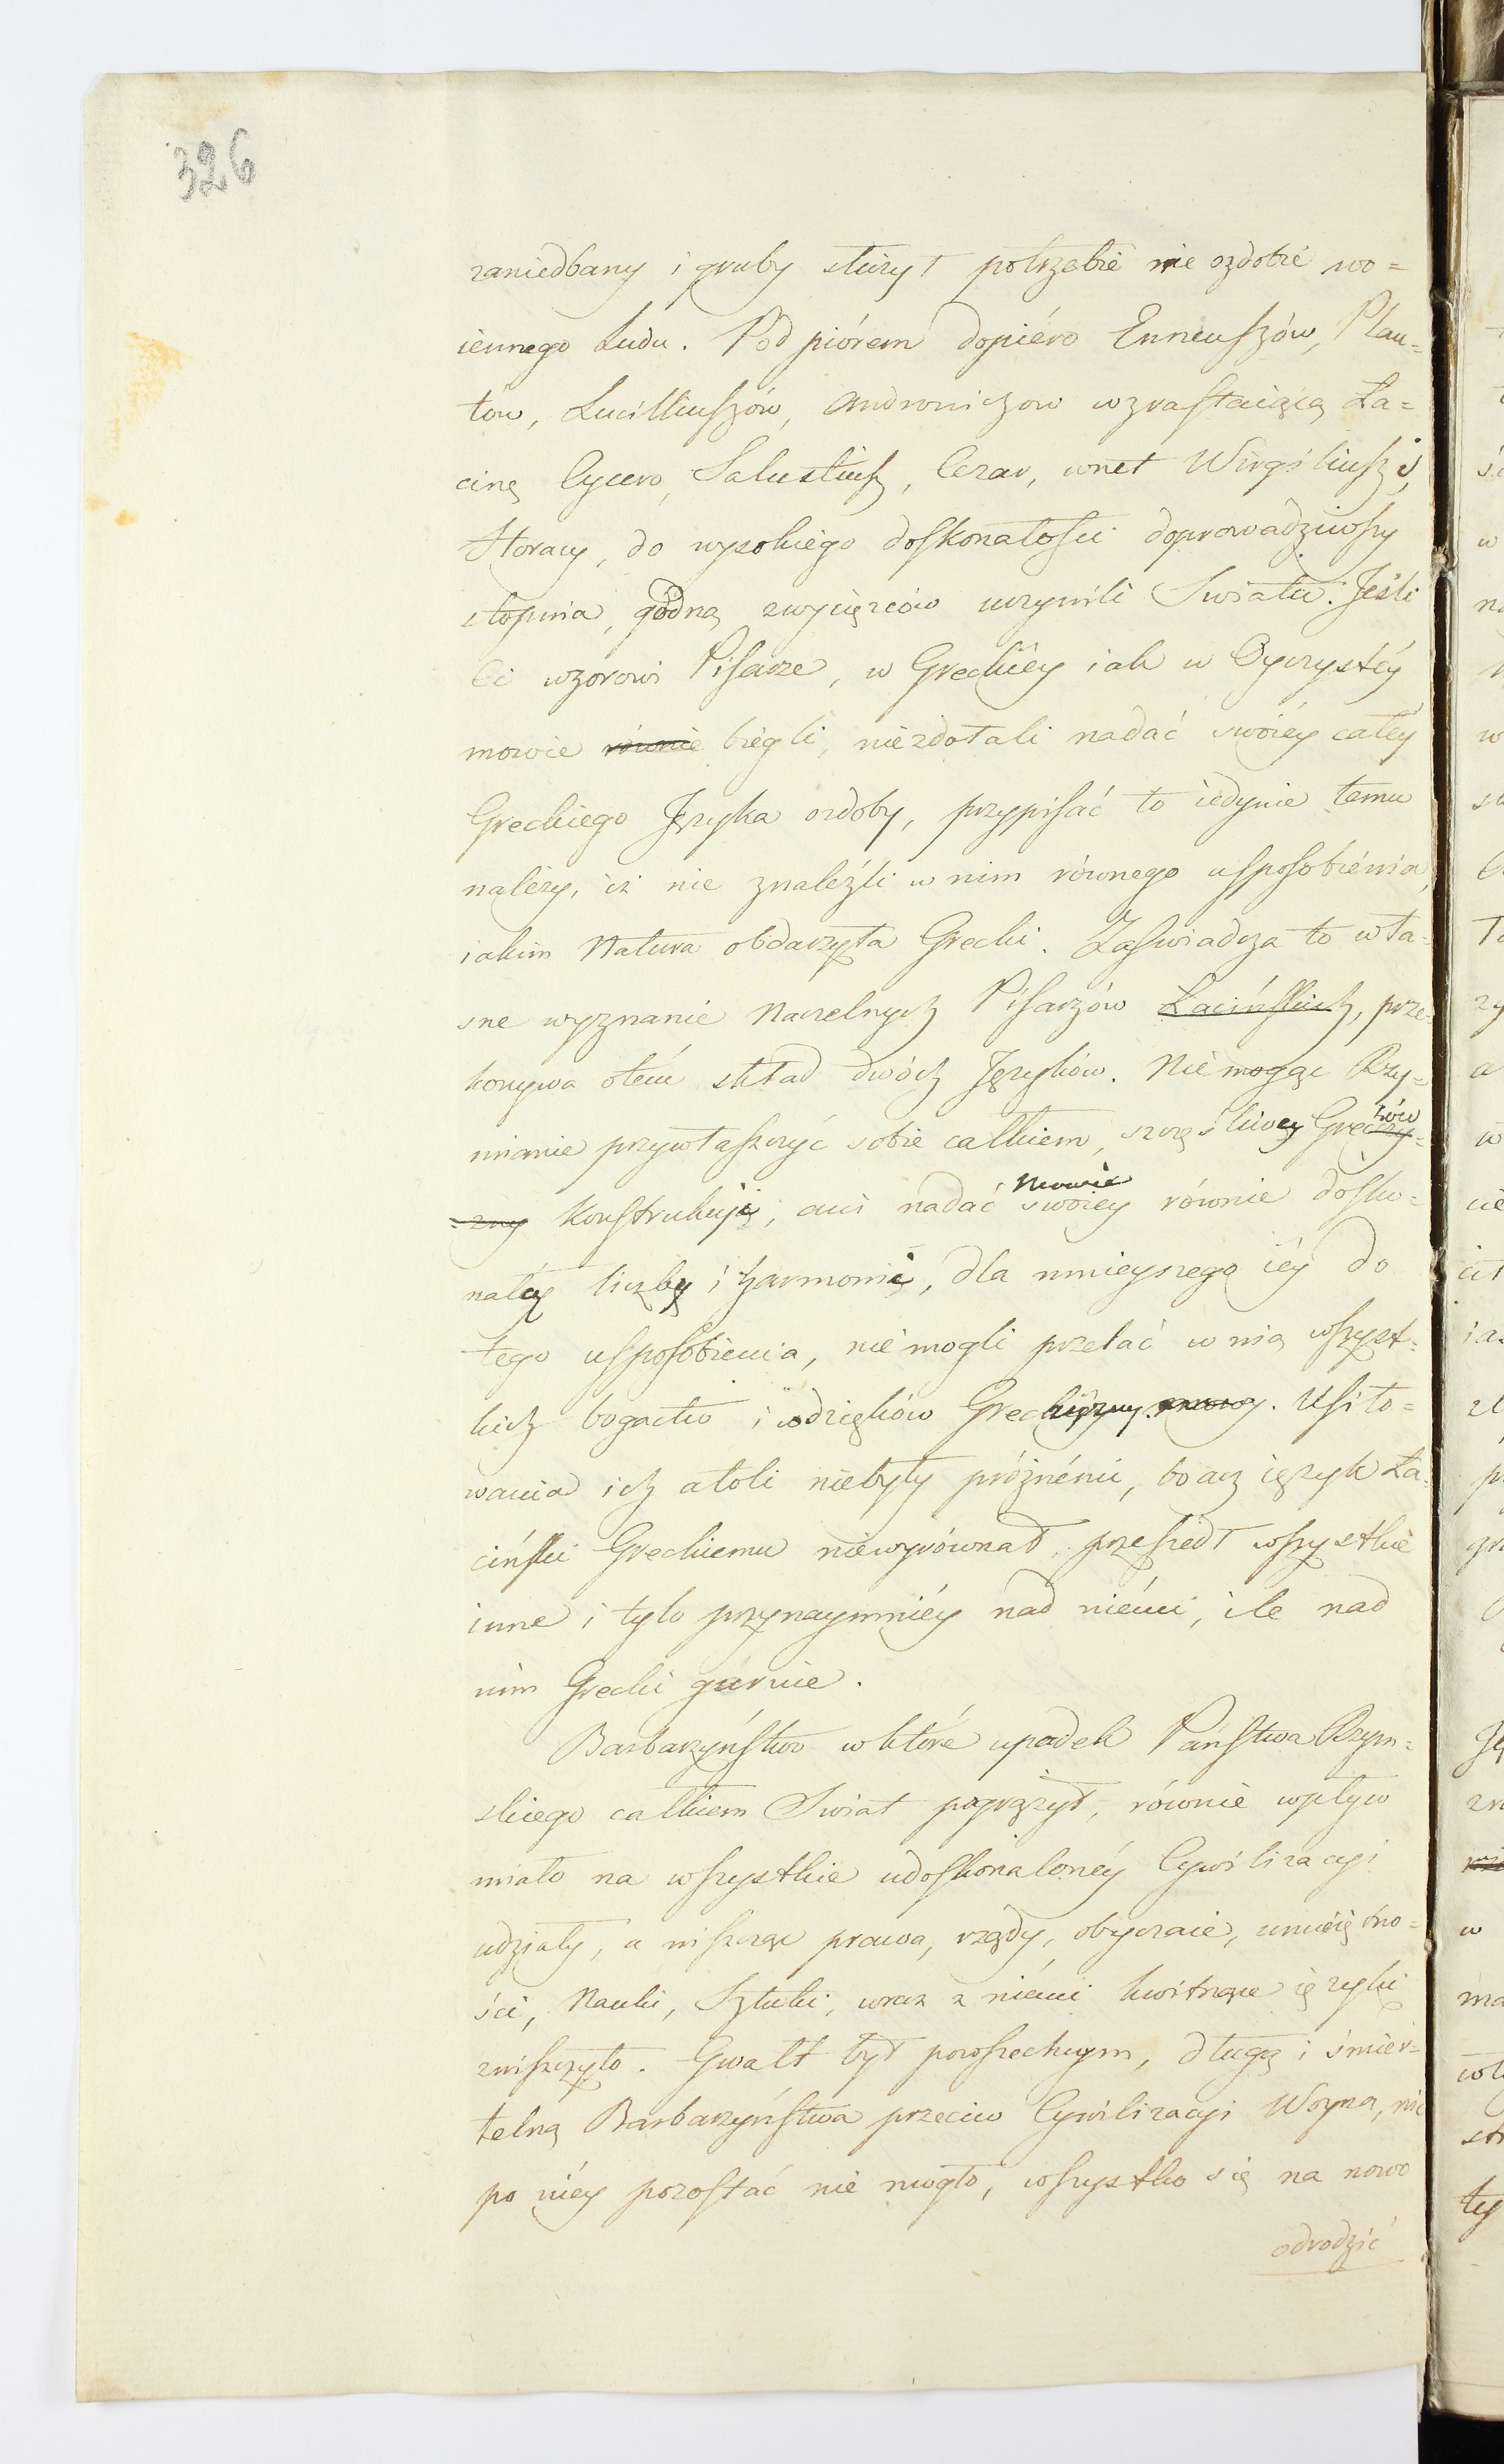 326
zaniedbany i gruby służył potrzebie nie ozdobie wo=
iennego Ludu. Pod piórem dopiéro Enneuszów, Plau=
tow, Lucilliuszów, Androniczow wzrastaiącą Ła=
cinę Cycero, Salustiusz, Cezar, wnet Wirgiliusz i,
Horacy, do wysokiego doskonałości doprowadziwszy
stopnia, godną zwycięzców uczynili Swiata. Jeśli
Ci wzorowi Pisarze, w Greckiéy iak w Oyczystéy
mowie równie biegli, niezdołali nadać swoiéy całéy
Greckiego Języka ozdoby, przypisać to iedynie temu
należy, iż nie znaleźli w nim równego usposobiénia,
iakim Natura obdarzyła Grecki. Zaświadcza to wła=
sne wyznanie Naczelnych Pisarzów Łacińskich, prze=
konywa otém skład dwóch Języków. Nie mogąc Rzy=
mianie przywłaszczyć sobie całkiem, szczęśliwey Greczy=
ków
=zny Konstrukcyi, ani nadać swoiey równie dosko=
Mowie
nałéy liczby i harmonii, dla mnieyszego iéy do
tego usposobienia, nie mogli przelać w nią wszyst=
kich bogactw i wdzięków Greckiéy mowy. Usiło=
wania ich atoli niebyły próżnémi, bo acz ięzyk Ła=
ciński Greckiemu niewyrównał, przeszedł wszystkie
inne i tylo przynaymniéy nad niémi, ile nad
nim Grecki góruie.
Barbarzyństwo w które upadek Państwa Rzym=
skiego całkiem Swiat pogrążył, równie wpływ
miało na wszystkie udoskonalonéy Cywilizacyi
udziały, a niszcząc prawa, rządy, obyczaie, umieiętno=
ści, Nauki, Sztuki, wraz z niémi kwitnące ięzyki
zniszczyło. Gwałt był powszechnym, długą i śmier=
telną Barbarzyństwa przeciw Cywilizacyi Woyna, nic
po niéy pozostać nie mogło, wszystko się na nowo
odrodzić